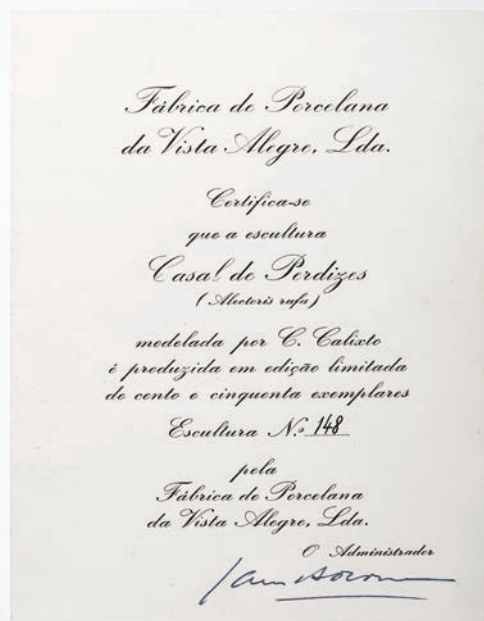 Fábrica de Porcelana
da Vista Alegre, Lda.
Certifica-se
que a escultura
Casal de Perdizes
(Alectoris rufa)
modelada por C. Calixto
é produzida em edição limitada
de cento e cinquenta exemplares
Escultura N.º 148
pela
Fábrica de Porcelana
da Vista Alegre, Lda.
O Administrador